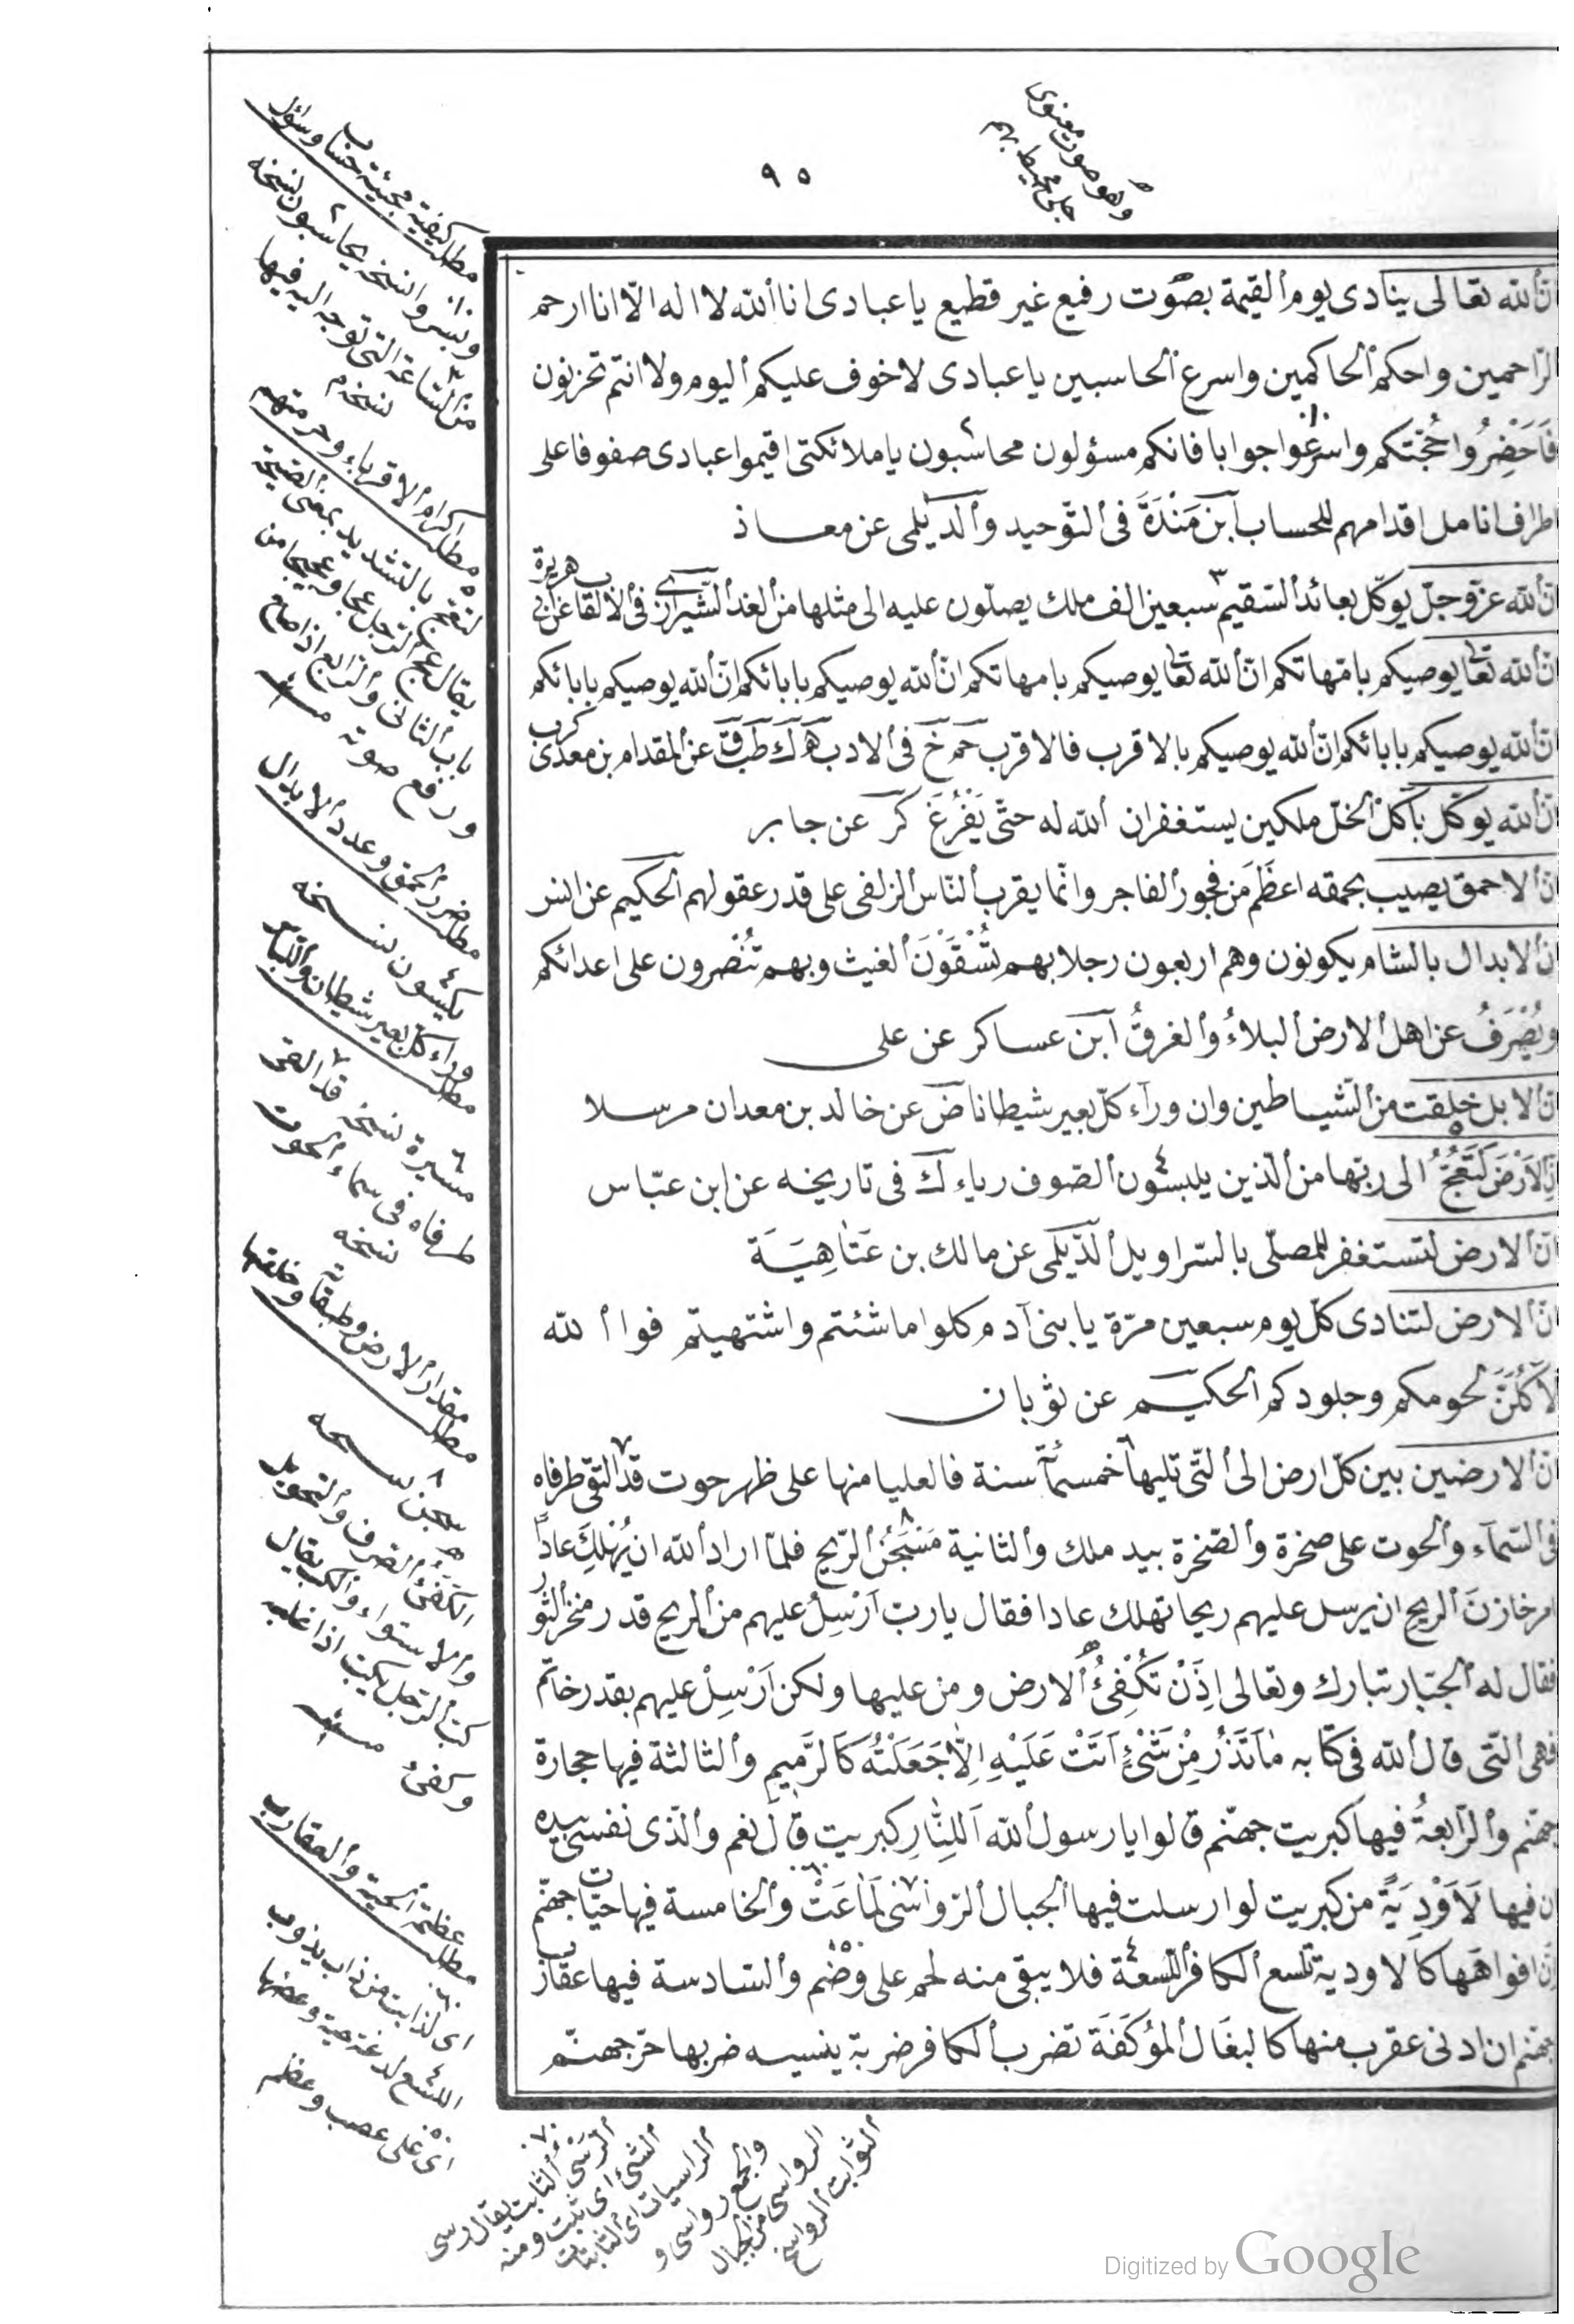 ٩٥
وهو صوت معنوى
جلى محيط بهم
انّ الله تعالى ينادى يوم القيمة بصوت رفيع غير قطيع يا عبادى انا الله لا اله الّا انا ارحم
الرّاحمين واحكم الحاكمين واسرع الحاسبين يا عبادى لا خوف عليكم اليوم ولا انتم تحزنون
فَاَحْضِرُوا حُجَّتكم واسرعوا جوابا فانكم مسؤلون محاسبون يا ملائكتى اقيموا عبادى صفوفا على
اطراف انامل اقدامهم للحساب ابن مَنْدَةَ فى التّوحيد والدّيلمى عن معاذ
انّ الله عزّ وجلّ يوكّل بعائد السّقيم سبعين الف ملك يصلّون عليه الى مثلها من الغد الشّيرازى فى الالقاب عن ابى هريرة
انّ الله تعا يوصيكم بامّهاتكم انّ الله تعا يوصيكم بامهاتكم انّ الله يوصيكم بابائكم انّ الله يوصيكم بابائكم
انّ الله يوصيكم بابائكم انّ الله يوصيكم بالاقرب فالاقرب حم خ فى الادب ه ك طب ق عن المقدام بن معدى كرب
انّ الله يوكّل باكل الخلّ ملكين يستغفران الله له حتّى يَفْرُغَ كر عن جابر
انّ الاحمق يصيب بحمقه اعظَمَ من فجور الفاجر وانّما يقرب النّاس الزلفى على قدر عقولهم الحكيم عن انس
انّ الابدال بالشام يكونون وهم اربعون رجلا بهم تُسْقَوْنَ الغيث وبهم تُنْصرون على اعدائكم
ويُصْرَفُ عن اهل الارض البلاءُ والغرقُ ابن عساكر عن على
انّ الابل خلقت من الشّياطين وان ورآء كلّ بعير شيطانا ض عن خالد بن معدان مرسلا
اِنَّ الاَرْضَ لَتَعُجُّ الى ربّها من الّذين يلبسون الصّوف رياء ك فى تاريخه عن ابن عبّاس
انّ الارض لتستغفر للمصلّى بالسّراويل الدّيلمى عن مالك بن عَتَاهِيَة
انّ الارض لتنادى كلّ يوم سبعين مرّة يا بنى آدم كلوا ما شئتم واشتهيتم فوا الله
لآكُلَنَّ لحومكم وجلودكم الحكيم عن ثوبان
انّ الارضين بين كلّ ارض الى الّتى تليها خمسمأة سنة فالعليا منها على ظهر حوت قد التقى طرفاه
فى السّمآء والحوت على صخرة والصّخرة بيد ملك والثانية مَسْجَنُ الرّيح فلمّا اراد الله ان يُهْلِكَ عاداً
امر خازنَ الريح ان يرسل عليهم ريحا تهلك عادا فقال يا ربّ اَرْسِلُ عليهم من الريح قدر منخر الثور
فقال له الجبّار تبارك وتعالى اِذَنْ تَكْفِئُ الارض ومن عليها ولكن اَرْسِلْ عليهم بقدر خاتم
فهى الّتى قال الله فى كتابه مَا تَذَرُ مِنْ شَىْءٍ اَتَتْ عَلَيْهِ اِلَّا جَعَلَتْهُ كَالرَّمِيمِ والثالثة فيها حجارة
جهنّم والرّابعةُ فيها كبريت جهنّم قالوا يا رسول الله اَلِلنَّارِ كبريت قال نعم والّذى نفسى بيده
ان فيها لَاَوْدِيَةً من كبريت لو ارسلت فيها الجبال الرّواسى لَمَاعَتْ والخامسة فيها حيّات جهنّم
اِنّ افواهَها كالاودية تلسع الكافر اللّسعة فلا يبقى منه لحم على وَضَمٍ والسّادسة فيها عقارب
جهنّم ان ادنى عقرب منها كالبغال المُؤكَفَة تضرب الكافر ضربة ينسيه ضربها حرّ جهنّم
مطلب كيفية مجيئة حساب وسؤال
ويسّر وا نسخه يحاسبون نسخه
من السّاعة التى توجه اليه فيها
نسخه م
مطلب اكرام الاقرباء وحرمتهم
لتعجّ بالتشديد بمعنى الصيحة
يقال عجّ الرّجل عجا وعجيجا من
باب الثانى والرّابع اذا صاح
ورفع صوته
مطلب ضرر الحمق وعدد الابدال
يكبسون نسخه
وراء كل بعير شيطان
مسيرة نسخه قد التقى
طرفاه فى سماء الحوت
نسخه
مطلب مقدار الارض وطبقاته وخلقتها
سجن نسخه
والاستواء والكبّ يقال
كبّ الرّجل يكبّ اذا غلب
وكفئ
مطلب عظمة الحية والعقارب
اى لذابت من ذاب يذوب
اللسع لدغة حية وعضها
اى على عصب وعظم
الرّسى الثابت يقال رسى
الشئ اى ثبت ومنه
الراسيات اى الثابتات
والجمع رواسى و
الرواسى من الجبال
الثوابت الرواسخ
Digitized by Google